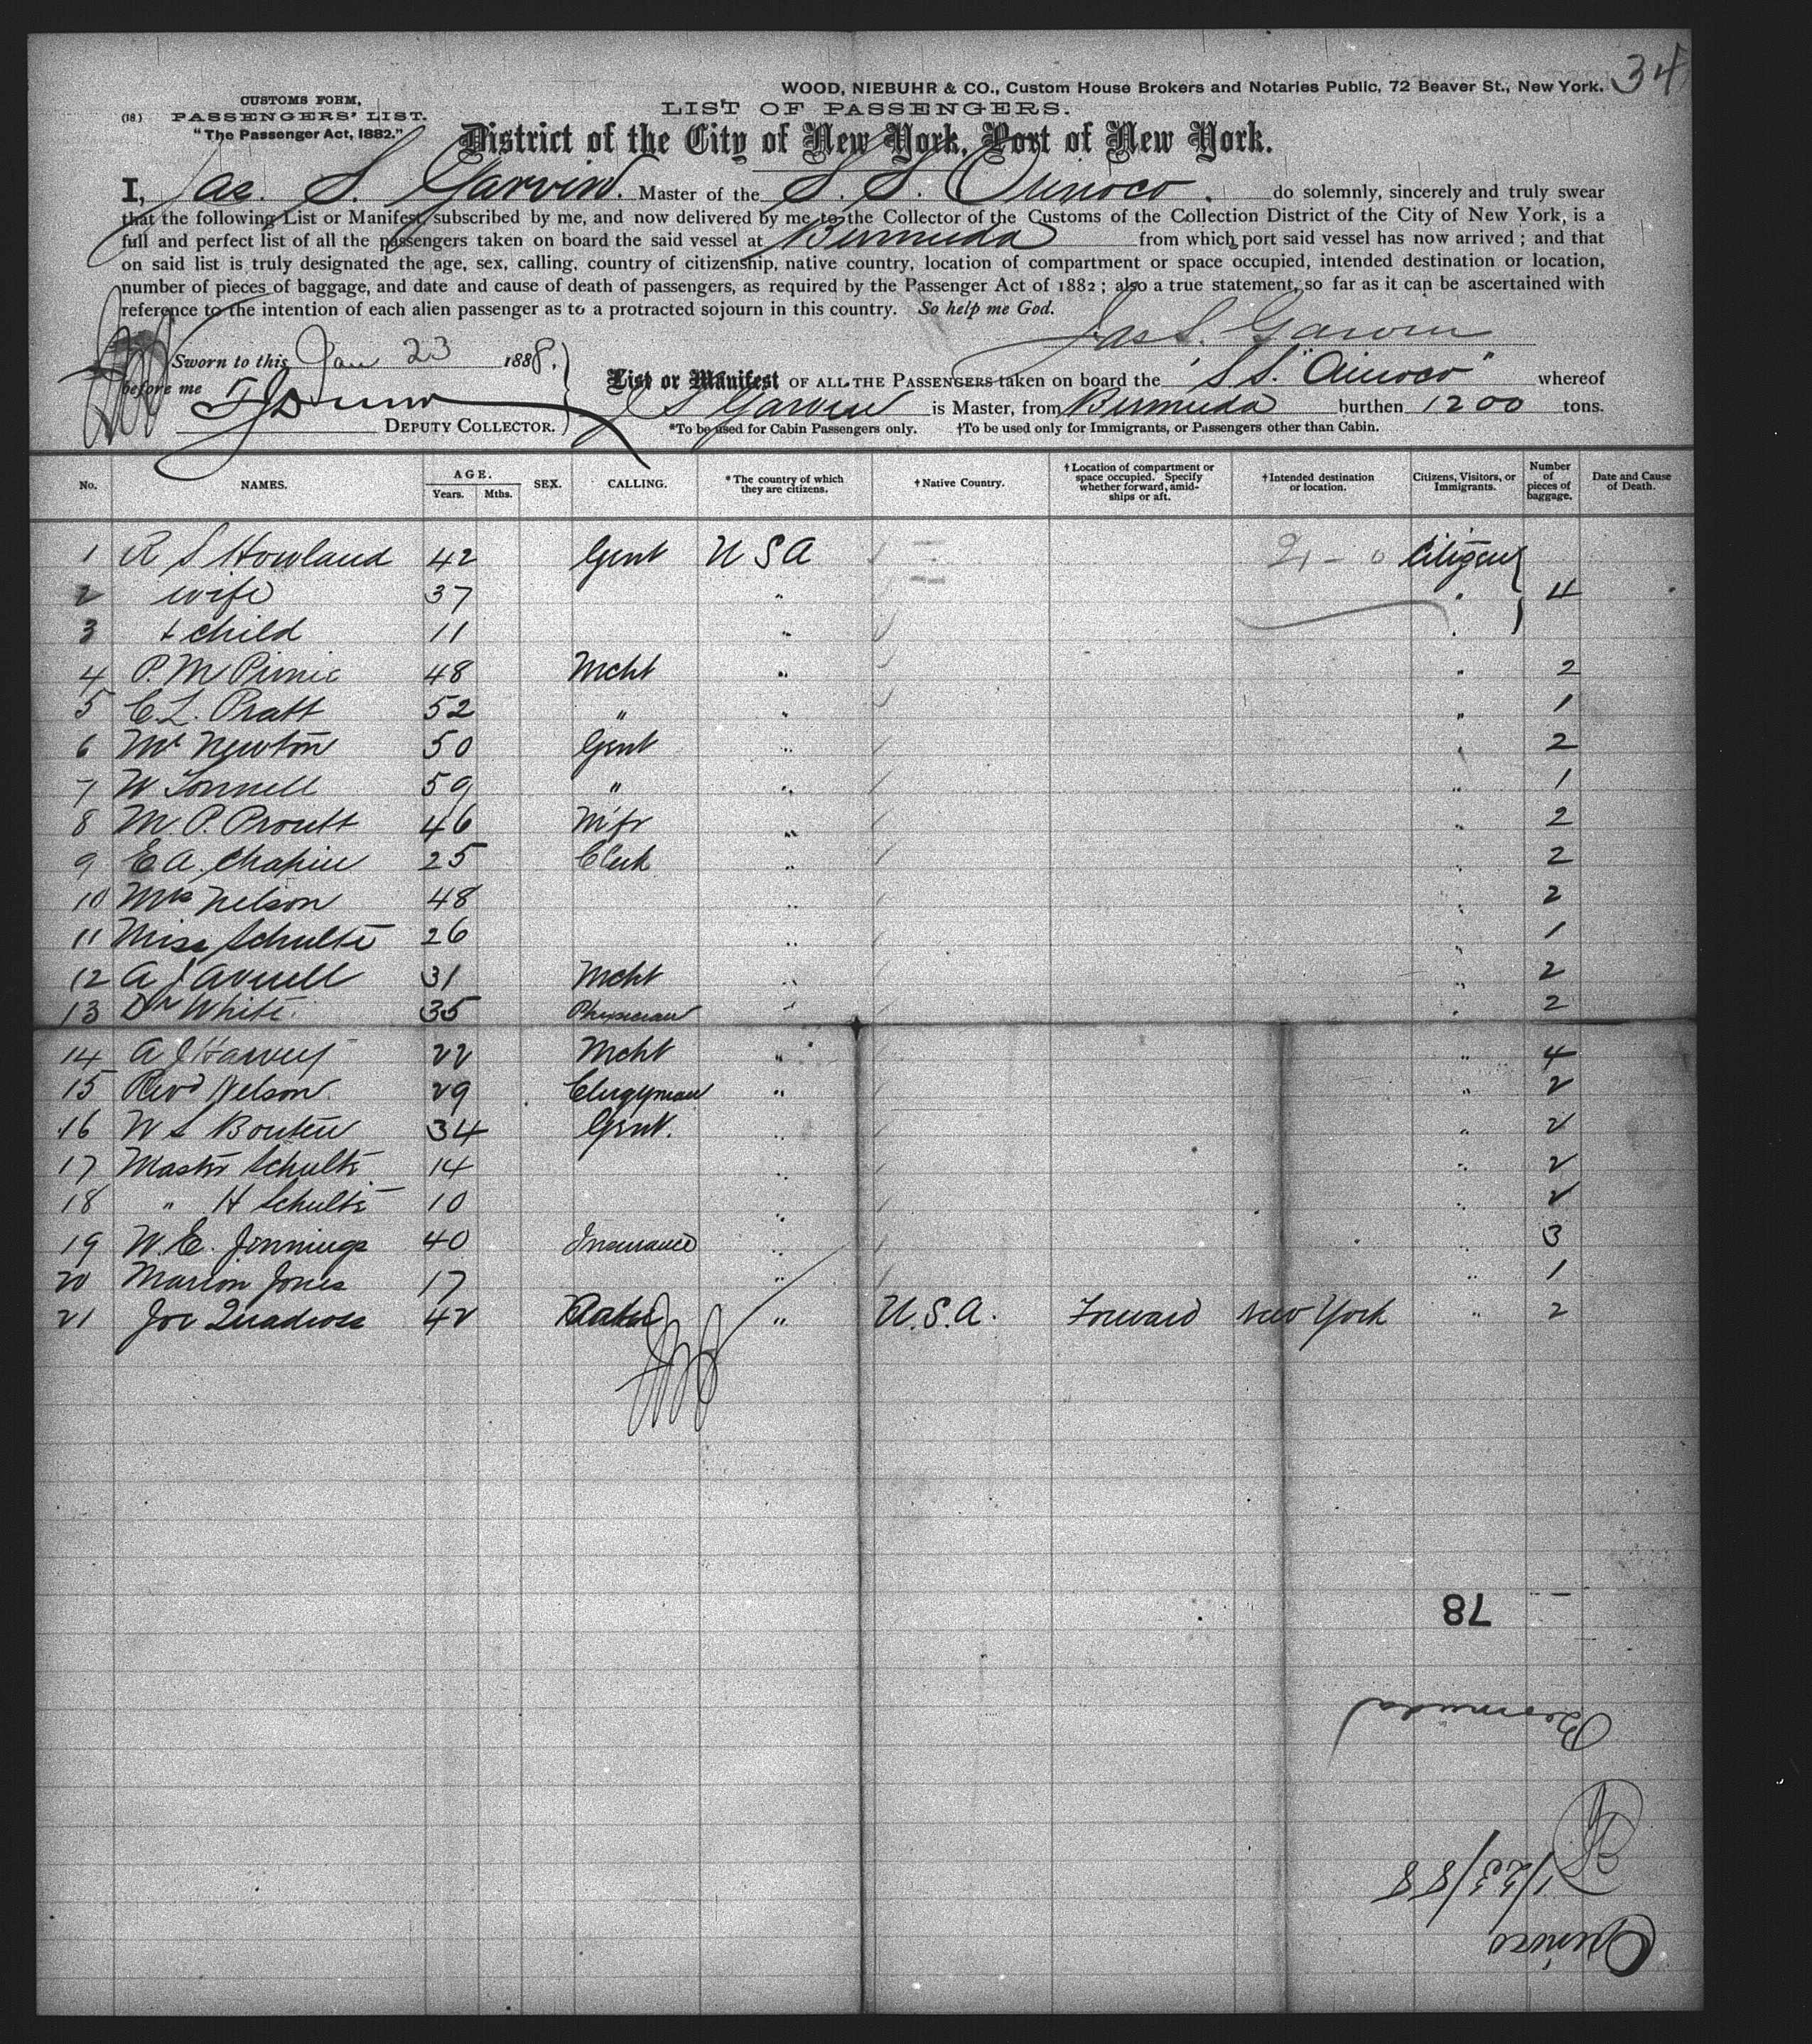 34
WOOD, NIEBUHR & CO., Custom House Brokers and Notaries Public, 72 Beaver St., New York.
CUSTOMS FORM,
(18.) PASSENGERS' LIST.
"The Passenger Act, 1882."
LIST OF PASSENGERS.
District of the City of New York, Port of New York.
I, Jas. S. Garvin. Master of the S. S. Orinoco. do solemnly, sincerely and truly swear
that the following List or Manifest, subscribed by me, and now delivered by me to the Collector of the Customs of the Collection District of the City of New York, is a
full and perfect list of all the passengers taken on board the said vessel at Bermuda from which port said vessel has now arrived; and that
on said list is truly designated the age, sex, calling, country of citizenship, native country, location of compartment or space occupied, intended destination or location,
number of pieces of baggage, and date and cause of death of passengers, as required by the Passenger Act of 1882; also a true statement, so far as it can be ascertained with
reference to the intention of each alien passenger as to a protracted sojourn in this country. So help me God.
Jas S. Garvin
Sworn to this Jan 23 1888.
before me
DEPUTY COLLECTOR.
List or Manifest OF ALL THE PASSENGERS taken on board the S.S. "Orinoco" whereof
J S Garvin is Master, from Bermuda burthen 1200 tons.
*To be used for Cabin Passengers only. †To be used only for Immigrants, or Passengers other than Cabin.
No. NAMES. AGE. Years. Mths. SEX. CALLING. *The country of which they are citizens. †Native Country. †Location of compartment or space occupied. Specify whether forward, amidships or aft. †Intended destination or location. Citizens, Visitors, or Immigrants. Number of pieces of baggage. Date and Cause of Death.
1 R S Howland 42 Gent U S A 21 - 0 Citizen
2 wife 37 " " 4
3 + child 11 " "
4 P. M Pirnie 48 Mcht " " 2
5 C. L. Pratt 52 " " " 1
6 Mr Newton 50 Gent " " 2
7 W Tonnell 59 " " " 1
8 M. P. Proutt 46 Mfr " " 2
9 E A. Chapin 25 Clerk " " 2
10 Mrs Nelson 48 " " 2
11 Miss Schulte 26 " " 1
12 A J Averell 31 Mcht " " 2
13 Dr White. 35 Physician " " 2
14 A J Harvey 22 Mcht " " 4
15 Revd Nelson. 29 Clergyman " " 2
16 W S Bonten 34 Gent. " " 2
17 Master Schulte 14 " " 2
18 " H Schulte 10 " " 2
19 W. E. Jennings 40 Insurance " " 3
20 Marion Jones 17 " " 1
21 Joe Quadross 42 " U.S.A. Forward New York " 2
78
Bermuda
1/23/88
Orinoco